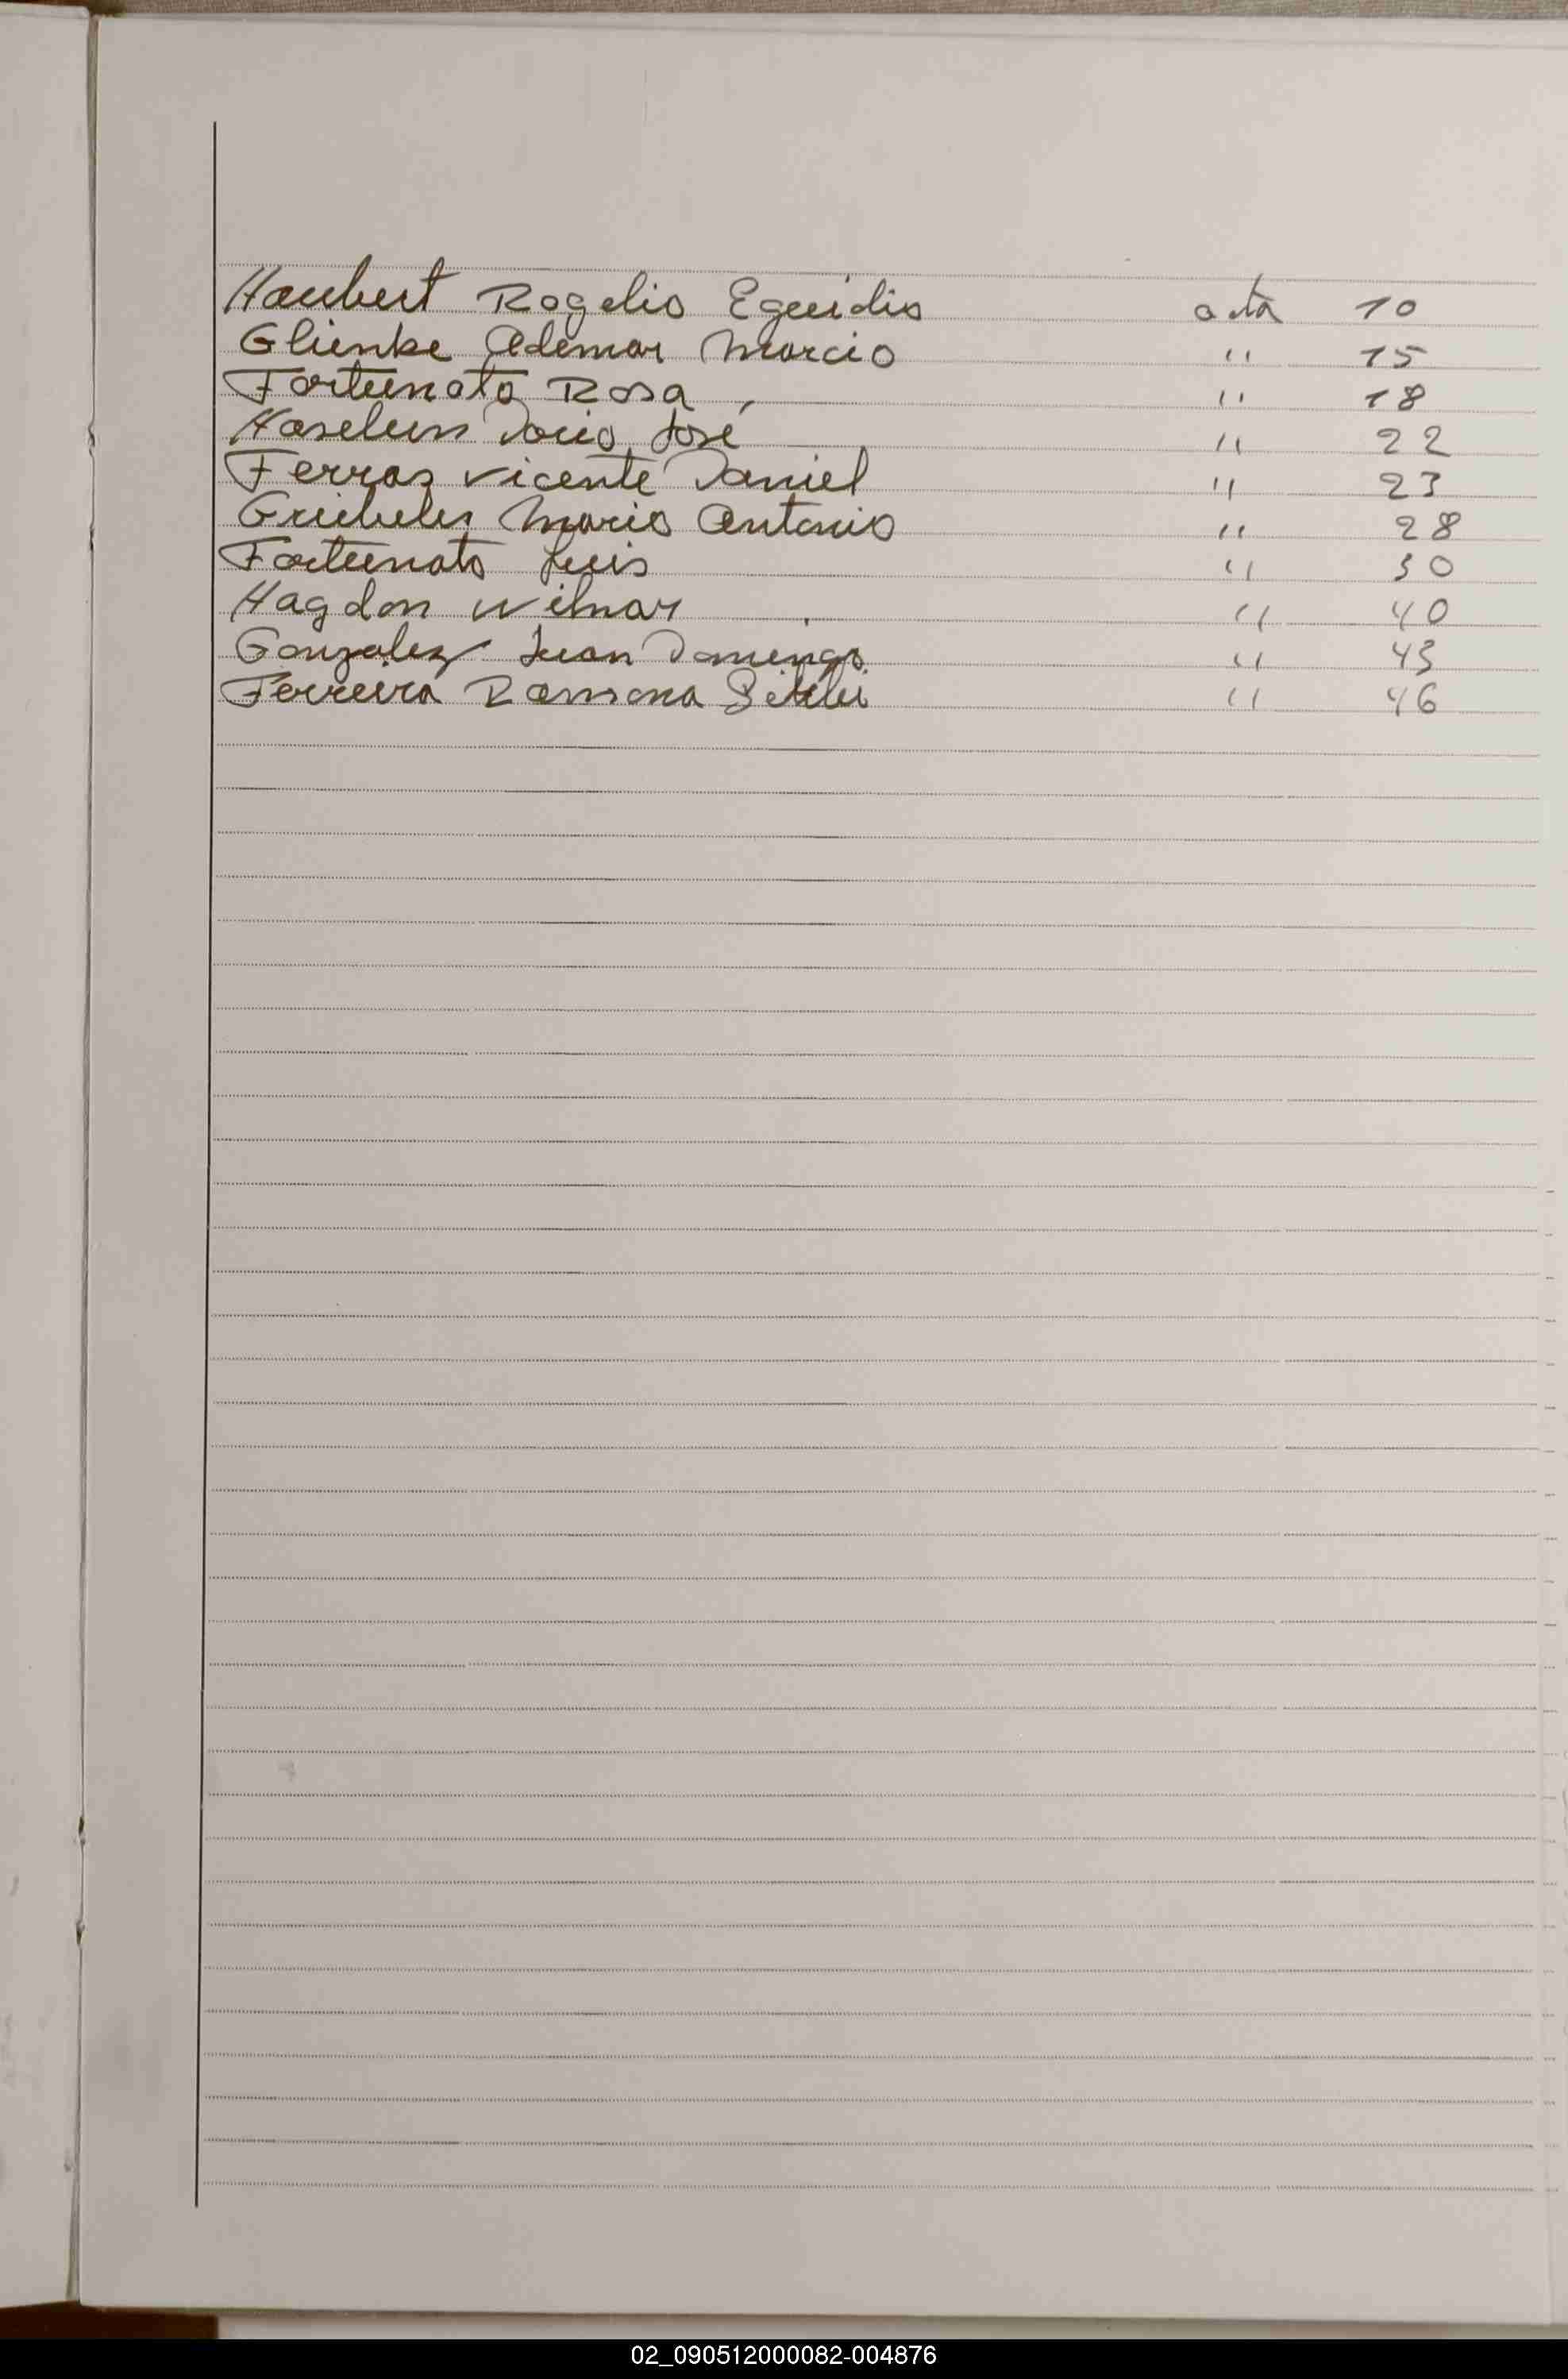 Haubert Rogelio Eguidio acta 10
Glienke Ademar Marcio " 15
Fortunato Rosa " 18
Haselein Dario José " 22
Ferras Vicente Daniel " 23
Mario Antonio " 28
Fortunato Luis " 30
Hagdon Wilmar " 40
Gonzalez Juan Domingo " 43
Ferreira Ramona " 46
02_090512000082-004876